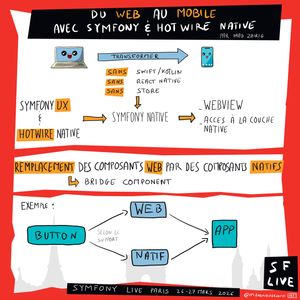 DU WEB AU MOBILE
AVEC SYMFONY & HOTWIRE NATIVE
TRANSFORMER
SANS SWIFT/KOTLIN
SANS REACT NATIVE
SANS STORE
SYMFONY UX
&
HOTWIRE NATIVE
SYMFONY NATIVE
- WEBVIEW
- ACCES À LA COUCHE
NATIVE
REMPLACEMENT DES COMPOSANTS WEB PAR DES COMPOSANTS NATIFS
BRIDGE COMPONENT
EXEMPLE :
BUTTON
SELON LE
SUPPORT
WEB
NATIF
APP
SYMFONY LIVE PARIS 26-27 MARS 2026
SF
LIVE